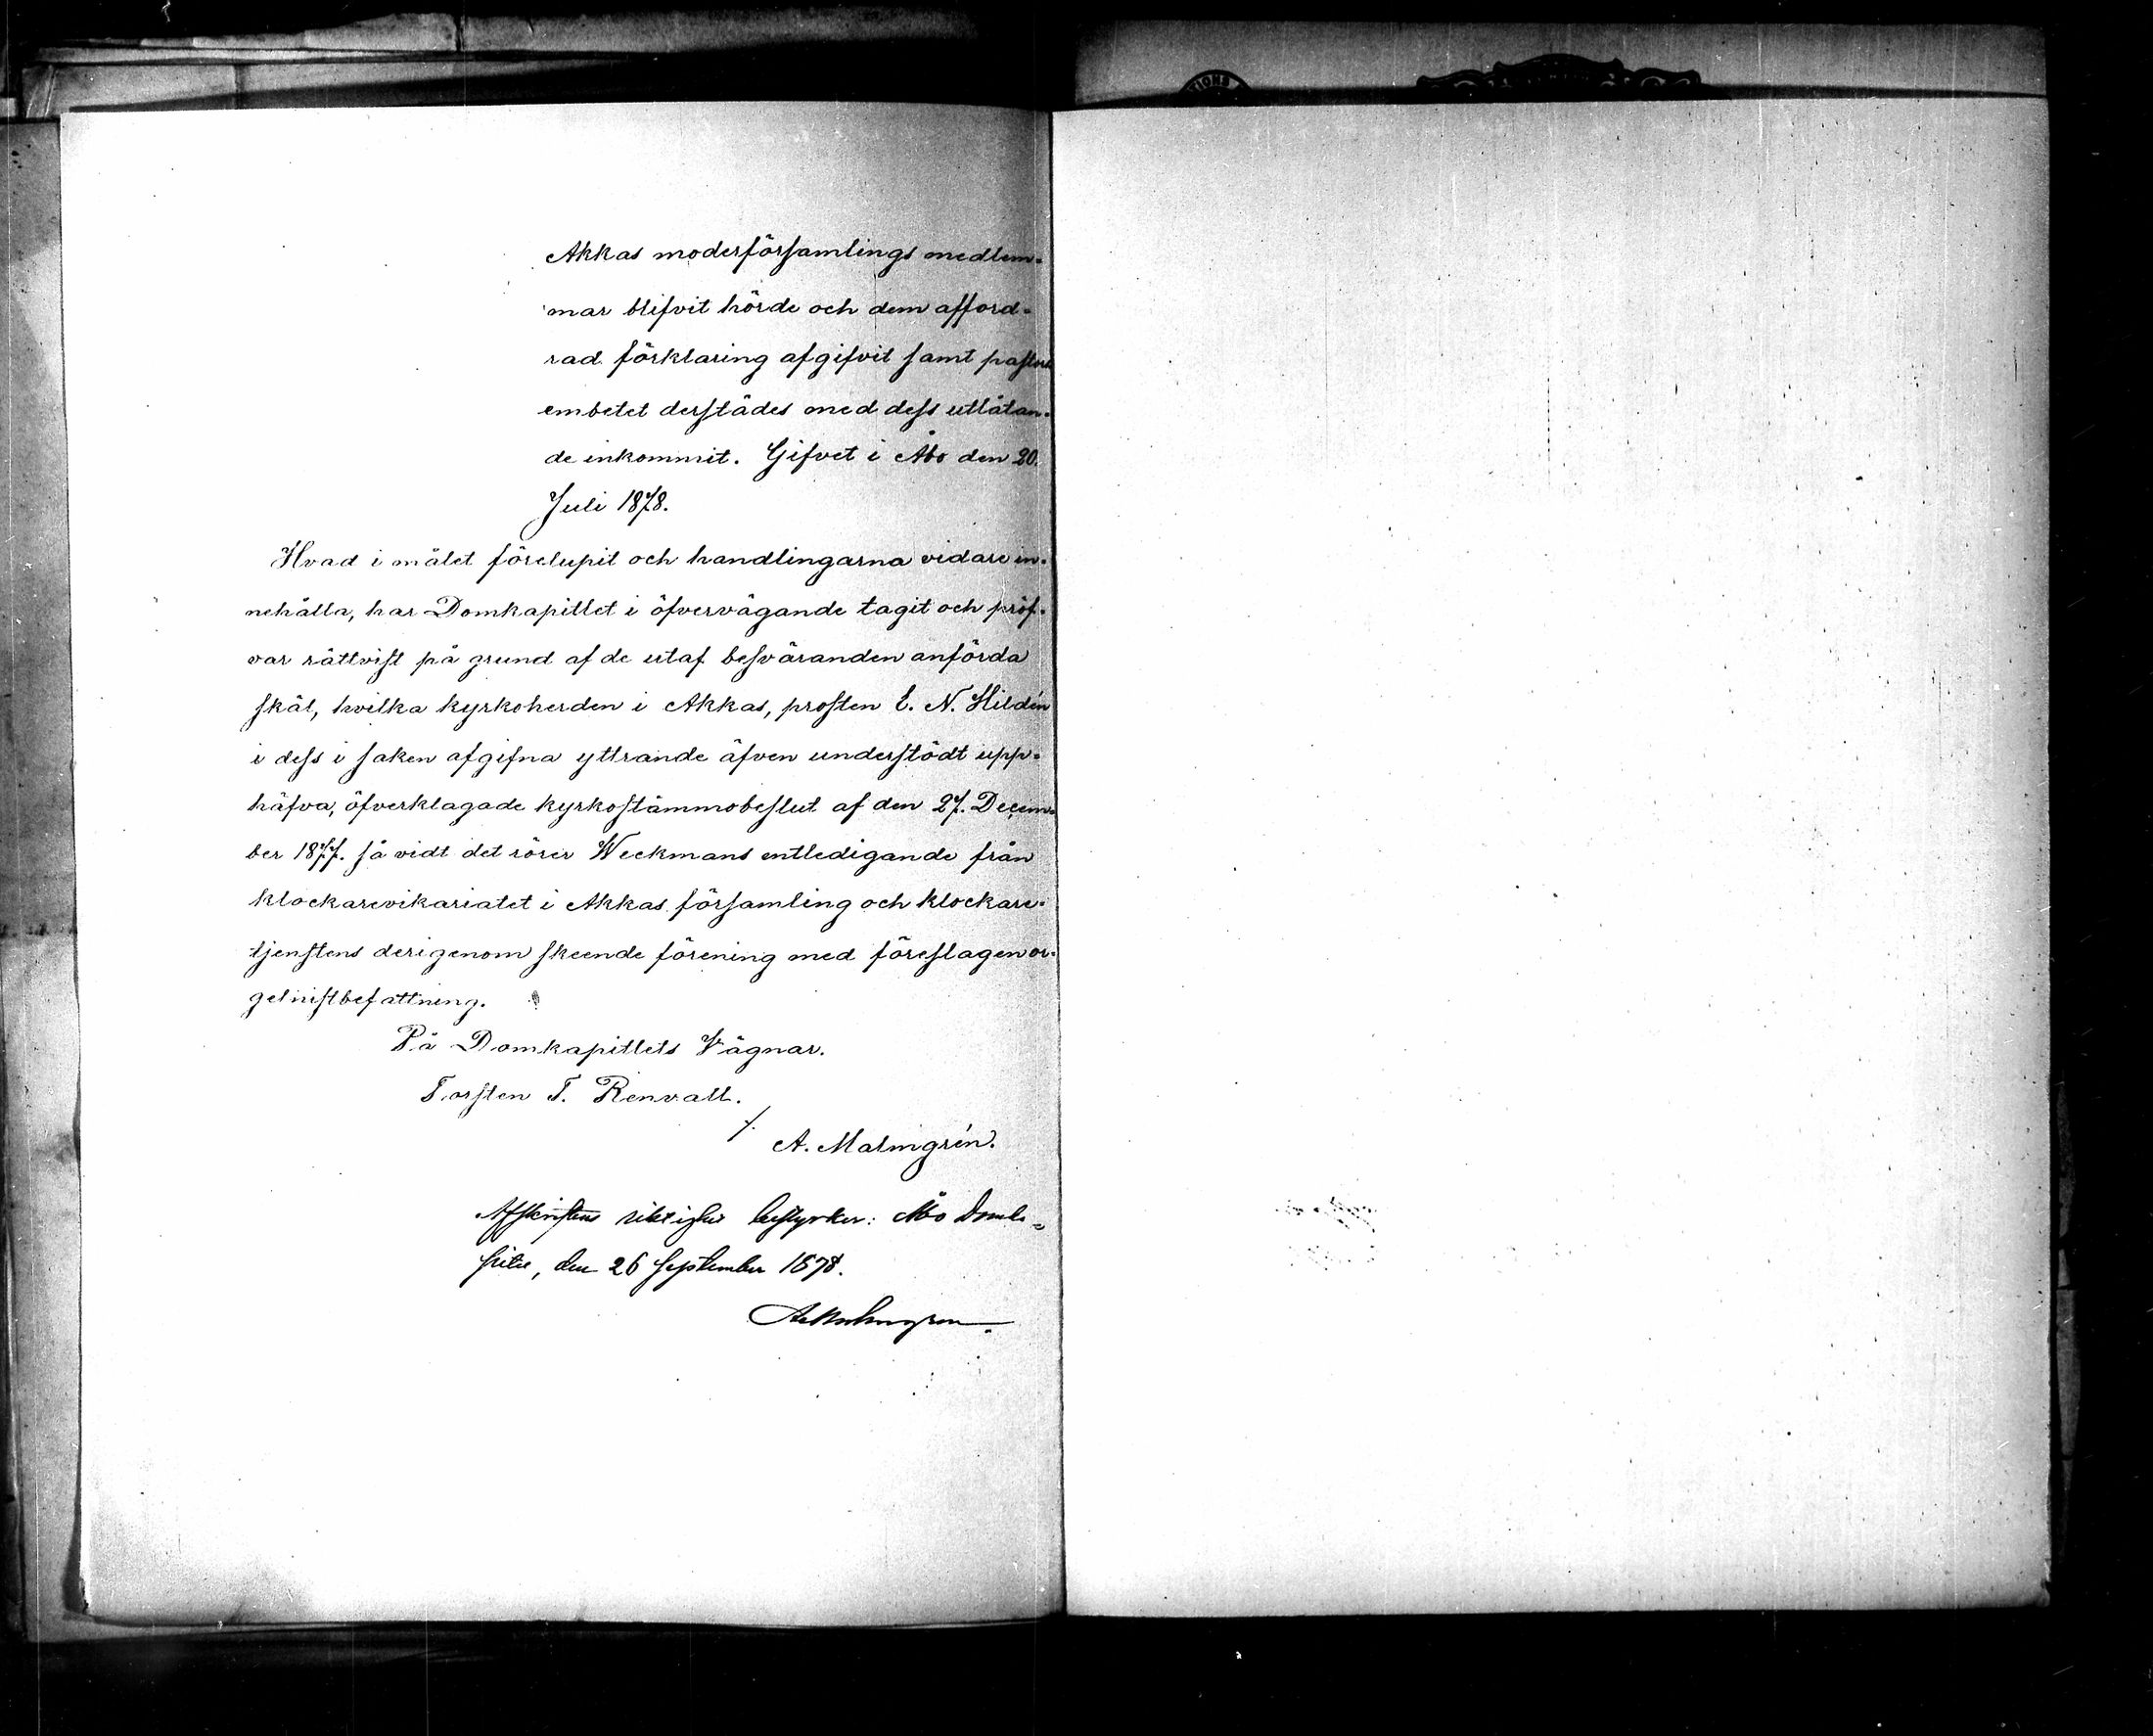 Akkas moderförsamlings medlem-
mar blifvit hörde och dem afford-
rad förklaring afgifvit samt pastors
embetet derstädes med dess utlåtan-
de inkommit. Gifvet i Åbo den 20.
Juli 1878.
Hvad i målet förelupit och handlingarna vidare in-
nehålla, har Domkapitlet i öfvervägande tagit och pröf-
var rättvist på grund af de utaf besväranden anförda
skäl, hvilka kyrkoherden i Akkas, prosten E. N. Hildén
i dess i saken afgifna yttrande äfven understödt upp-
häfva, öfverklagade kyrkostämmobeslut af den 27. Decem-
ber 1877. så vidt det rörer Weckmans entledigande från
klockarevikariatet i Akkas församling och klockare-
tjenstens derigenom skeende förening med föreslagen or-
gelnistbefattning.
På Domkapitlets Vägnar.
Torsten T. Renvall.
/.
A. Malmgrén.
Afskriftens riktighet bestyrker: Åbo Domka-
pitel, den 26 September 1878.
A Malmgren.